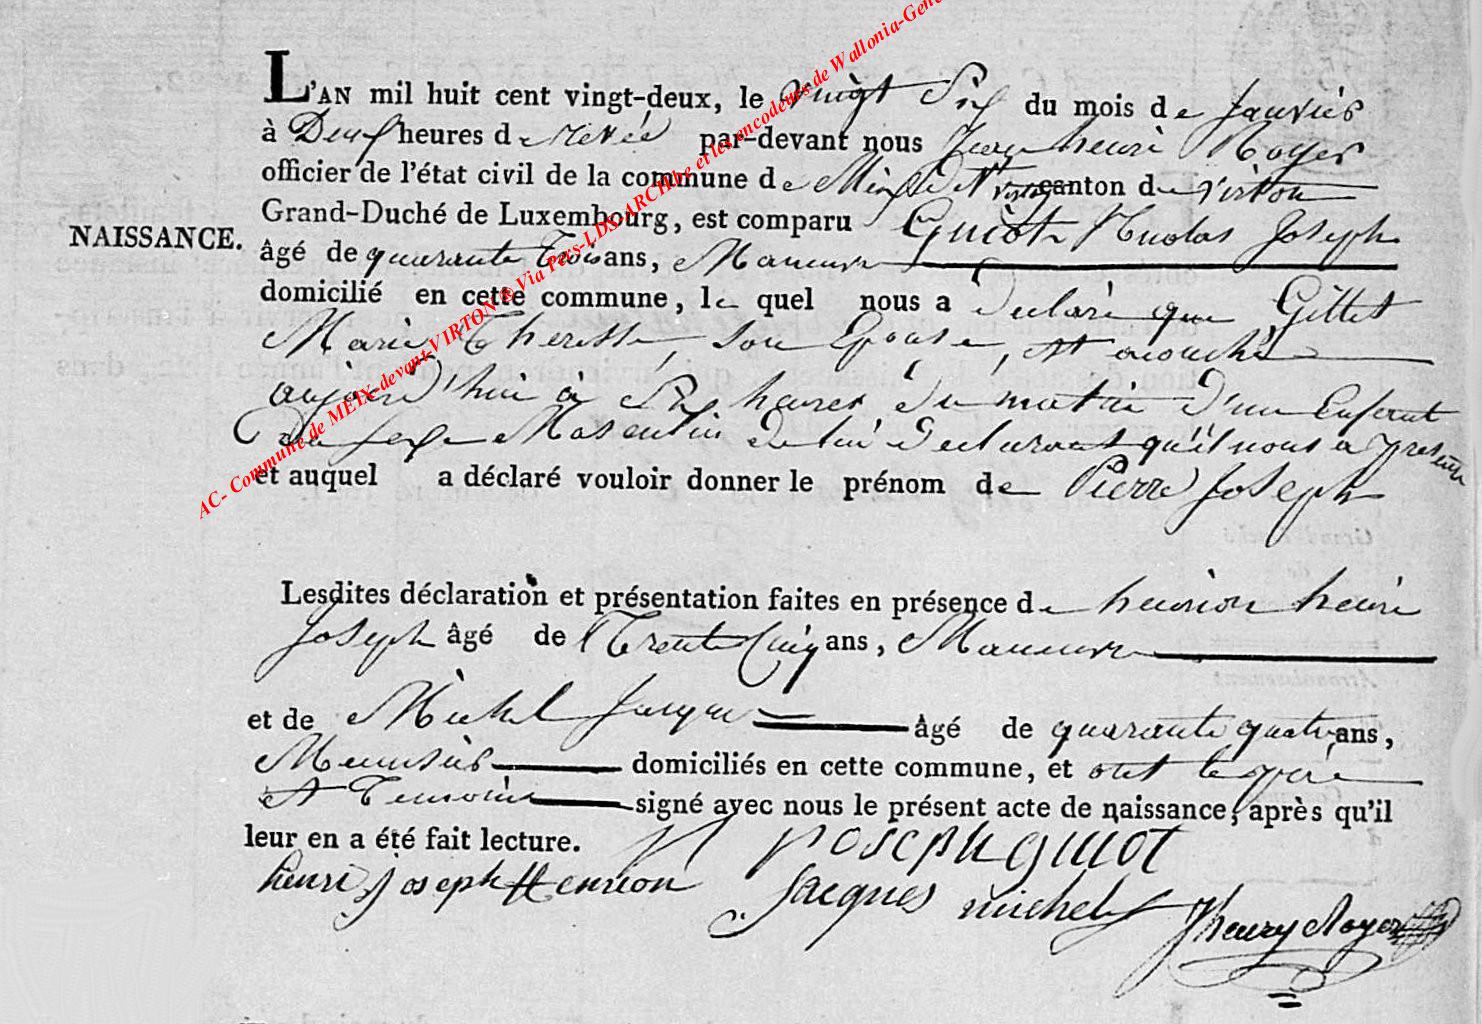 L'AN mil huit cent vingt-deux, le vingt Six du mois de Janvier
à Deux heures de relevée par-devant nous Jean henri Royer
officier de l'état civil de la commune de Meix dt Virton canton de Virton
Grand-Duché de Luxembourg, est comparu Guiot Nicolas Joseph
NAISSANCE.
âgé de quarante trois ans, Maneuvre
domicilié en cette commune, le quel nous a declaré que Gillet
Marie Theresse, son Epouse, est acouché
aujourd'hui à Six heures du matin d'un Enfant
du sexe Masculin de lui declarant qu'il nous a presenté
et auquel a déclaré vouloir donner le prénom de Pierre Joseph
Lesdites déclaration et présentation faites en présence de henrion henri
Joseph âgé de Trente Cinq ans, Maneuvre
et de Michel Jacques âgé de quarante quatre ans,
Meunier domiciliés en cette commune, et ont le père
et Temoins signé avec nous le présent acte de naissance, après qu'il
leur en a été fait lecture. N Joseph guiot
henri Joseph Henrion Jacques michel Jhenry Royer
AC- Commune de MEIX-devant-VIRTON ® Via Pers-LDS-ARCH.be et les encodeurs de Wallonia-Gen